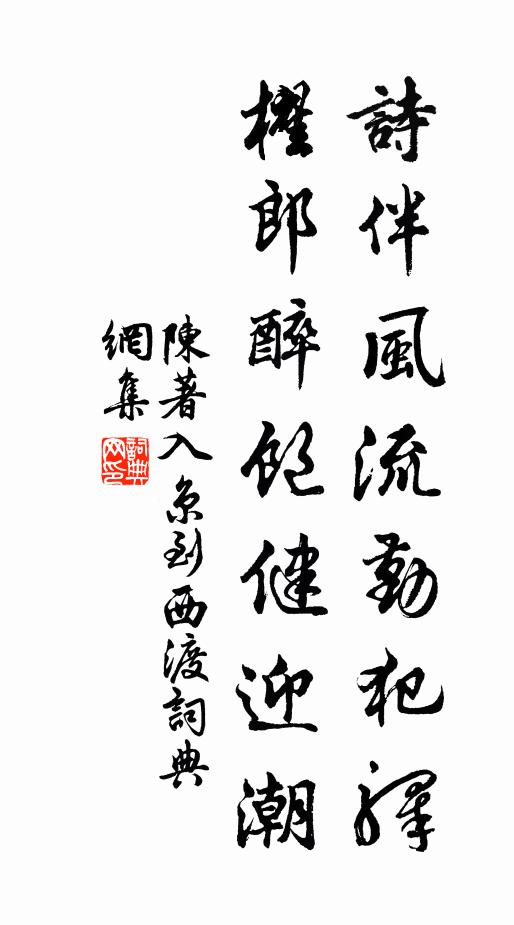 詩伴風流勤犯驛
櫂郎醉飽健迎潮
陳著入京到西渡詞典
網集
詞典
网印